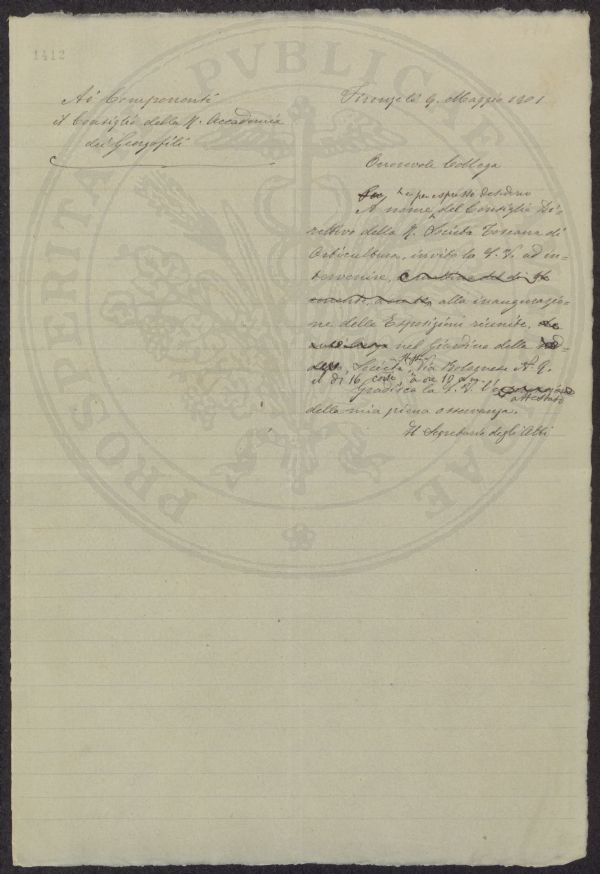 1412
PROSPERITATI PVBLICAE
Ai Componenti
il Consiglio della R. Accademia
dei Georgofili
Firenze li 9. Maggio 1901
Onorevole Collega
e per espresso desiderio
A nome del Consiglio Di-
rettivo della R. Società Toscana di
Orticultura, invito la S. V. ad in-
tervenire, alla inaugurazio-
ne delle Esposizioni riunite,
nel Giardino della
Società, Via Bolognese N. 9.
il dì 16, corre a ore 10
Gradisca la S. V.
attestato
della mia piena osservanza.
Il Segretario degli Atti